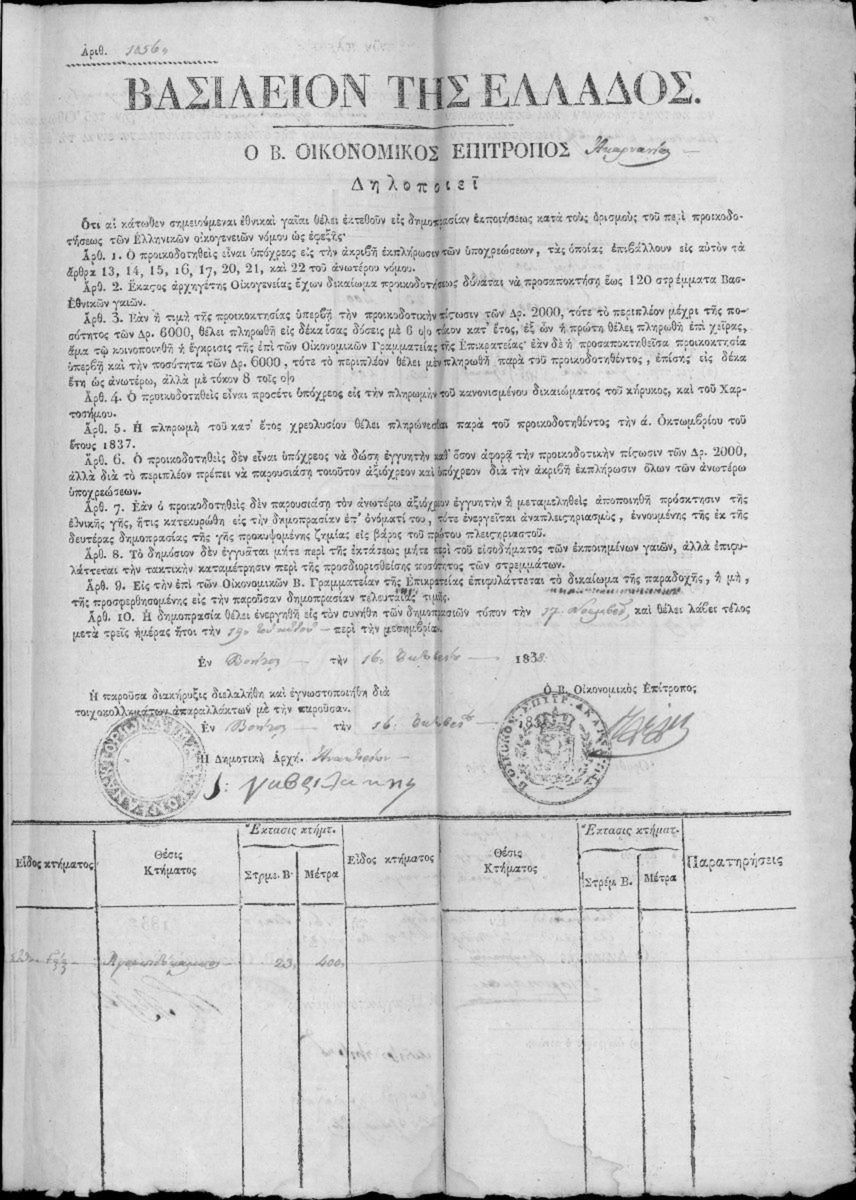 Ἀριθ.
ΒΑΣΙΛΕΙΟΝ ΤΗΣ ΕΛΛΑΔΟΣ.
Ο Β. ΟΙΚΟΝΟΜΙΚΟΣ ΕΠΙΤΡΟΠΟΣ Ἀκαρνανίας
Δηλοποιεῖ
Ὅτι αἱ κάτωθεν σημειούμεναι ἐθνικαὶ γαῖαι θέλει ἐκτεθοῦν εἰς δημοπρασίαν ἐκποιήσεως κατὰ τοὺς ὁρισμοὺς τοῦ περὶ προικοδο-
τήσεως τῶν Ἑλληνικῶν οἰκογενειῶν νόμου ὡς ἐφεξῆς·
Ἀρθ. 1. Ὁ προικοδοτηθεὶς εἶναι ὑπόχρεος εἰς τὴν ἀκριβῆ ἐκπλήρωσιν τῶν ὑποχρεώσεων, τὰς ὁποίας ἐπιβάλλουν εἰς αὐτὸν τὰ
ἄρθρα 13, 14, 15, 16, 17, 20, 21, καὶ 22 τοῦ ἀνωτέρου νόμου.
Ἀρθ. 2. Ἕκαστος ἀρχηγέτης Οἰκογενείας ἔχων δικαίωμα προικοδοτήσεως δύναται νὰ προσαποκτήσῃ ἕως 120 στρέμματα Βασ-
Ἐθνικῶν γαιῶν.
Ἀρθ. 3. Ἐὰν ἡ τιμὴ τῆς προικοκτησίας ὑπερβῇ τὴν προικοδοτικὴν πίστωσιν τῶν Δρ. 2000, τότε τὸ περιπλέον μέχρι τῆς πο-
σότητος τῶν Δρ. 6000, θέλει πληρωθῇ εἰς δέκα ἴσας δόσεις μὲ 6 ο)ο τόκον κατ' ἔτος, ἐξ ὧν ἡ πρώτη θέλει πληρωθῇ ἐπὶ χεῖρας,
ἅμα τῷ κοινοποιηθῇ ἡ ἔγκρισις τῆς ἐπὶ τῶν Οἰκονομικῶν Γραμματείας τῆς Ἐπικρατείας· ἐὰν δὲ ἡ προσαποκτηθεῖσα προικοκτησία
ὑπερβῇ καὶ τὴν ποσότητα τῶν Δρ. 6000, τότε τὸ περιπλέον θέλει μὲν πληρωθῇ παρὰ τοῦ προικοδοτηθέντος, ἐπίσης εἰς δέκα
ἔτη ὡς ἀνωτέρω, ἀλλὰ μὲ τόκον 8 τοῖς ο)ο
Ἀρθ. 4. Ὁ προικοδοτηθεὶς εἶναι προσέτι ὑπόχρεος εἰς τὴν πληρωμὴν τοῦ κανονισμένου δικαιώματος τοῦ κήρυκος, καὶ τοῦ Χαρ-
τοσήμου.
Ἀρθ. 5. Ἡ πληρωμὴ τοῦ κατ' ἔτος χρεολυσίου θέλει πληρώνεσθαι παρὰ τοῦ προικοδοτηθέντος τὴν ά. Ὀκτωμβρίου τοῦ
ἔτους 1837.
Ἀρθ. 6. Ὁ προικοδοτηθεὶς δὲν εἶναι ὑπόχρεος νὰ δώσῃ ἐγγυητὴν καθ' ὅσον ἀφορᾷ τὴν προικοδοτικὴν πίστωσιν τῶν Δρ. 2000,
ἀλλὰ διὰ τὸ περιπλέον πρέπει νὰ παρουσιάσῃ τοιοῦτον ἀξιόχρεον καὶ ὑπόχρεον διὰ τὴν ἀκριβῆ ἐκπλήρωσιν ὅλων τῶν ἀνωτέρω
ὑποχρεώσεων.
Ἀρθ. 7. Ἐὰν ὁ προικοδοτηθεὶς δὲν παρουσιάσῃ τὸν ἀνωτέρω ἀξιόχρεον ἐγγυητὴν ἢ μεταμεληθεὶς ἀποποιηθῇ πρόσκτησιν τῆς
ἐθνικῆς γῆς, ἥτις κατεκυρώθη εἰς τὴν δημοπρασίαν ἐπ' ὀνόματί του, τότε ἐνεργεῖται ἀναπλειστηριασμὸς, ἐννουμένης τῆς ἐκ τῆς
δευτέρας δημοπρασίας τῆς γῆς προκυψομένης ζημίας εἰς βάρος τοῦ πρώτου πλειστηριαστοῦ.
Ἀρθ. 8. Τὸ δημόσιον δὲν ἐγγυᾶται μήτε περὶ τῆς ἐκτάσεως μήτε περὶ τοῦ εἰσοδήματος τῶν ἐκποιημένων γαιῶν, ἀλλὰ ἐπιφυ-
λάττεται τὴν τακτικὴν καταμέτρησιν περὶ τῆς προσδιορισθείσης ποσότητος τῶν στρεμμάτων.
Ἀρθ. 9. Εἰς τὴν ἐπὶ τῶν Οἰκονομικῶν Β. Γραμματείαν τῆς Ἐπικρατείας ἐπιφυλάττεται τὸ δικαίωμα τῆς παραδοχῆς, ἢ μὴ,
τῆς προσφερθησομένης εἰς τὴν παροῦσαν δημοπρασίαν τελευταίας τιμῆς.
Ἀρθ. 10. Ἡ δημοπρασία θέλει ἐνεργηθῇ εἰς τὸν συνήθη τῶν δημοπρασιῶν τόπον τὴν 17 Νοεμβρίου, καὶ θέλει λάβει τέλος
μετὰ τρεῖς ἡμέρας ἤτοι τὴν 19 τοῦ αὐτοῦ περὶ τὴν μεσημβρίαν.
Ἐν Βονίτσῃ τὴν 16 Ὀκτωβρίου 1838.
Ἡ παροῦσα διακήρυξις διελαλήθη καὶ ἐγνωστοποιήθη διὰ
τοιχοκολλημάτων ἀπαραλλάκτων μὲ τὴν παροῦσαν.
Ὁ Β. Οἰκονομικὸς Ἐπίτροπος
Ἐν Βονίτσῃ τὴν 16 Ὀκτωβρίου 183
Ἡ Δημοτικὴ Ἀρχή. Ἀνακτορίου
Εἶδος κτήματος
Θέσις Κτήματος
Ἔκτασις κτήμτ.
Στρμε. Β.
Μέτρα
Εἶδος κτήματος
Θέσις Κτήματος
Ἔκτασις κτήματ.
Στρέμ Β.
Μέτρα
Παρατηρήσεις
23 400